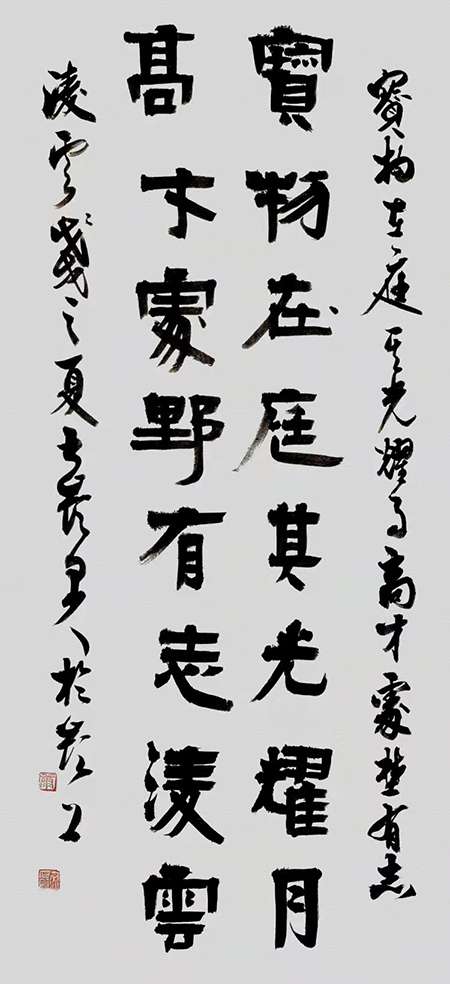 寶物在庭其光耀月高才處埜有志
寶物在庭其光耀月
髙才處野有志淩雲
淩雲之夏於